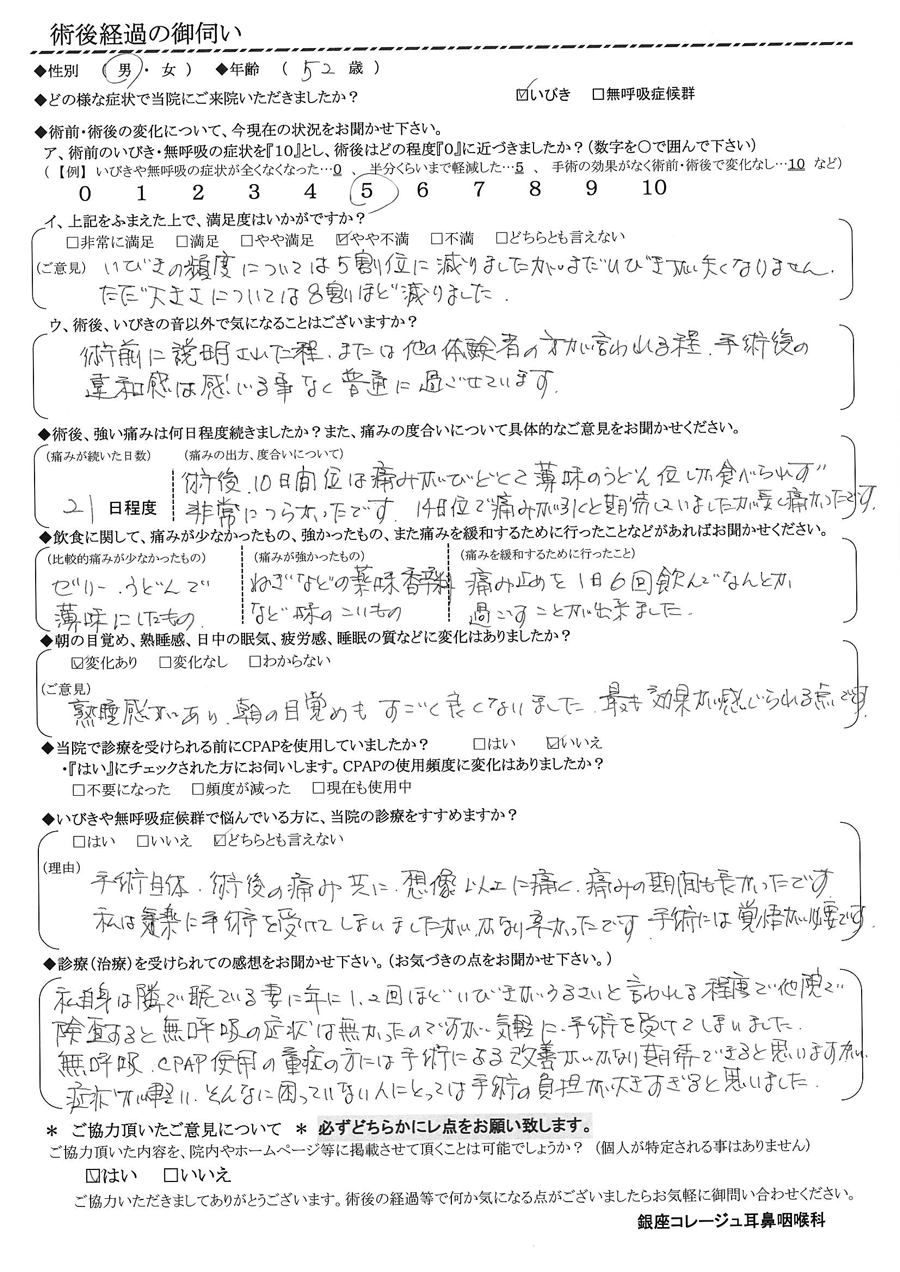 術後経過の御伺い
◆性別 (男・女) ◆年齢 (52歳)
◆どの様な症状で当院にご来院いただきましたか? ☑いびき □無呼吸症候群
◆術前・術後の変化について、今現在の状況をお聞かせ下さい。
ア、術前のいびき・無呼吸の症状を『10』とし、術後はどの程度『0』に近づきましたか?(数字を○で囲んで下さい)
(【例】いびきや無呼吸の症状が全くなくなった…0 、 半分くらいまで軽減した…5 、 手術の効果がなく術前・術後で変化なし…10 など)
0 1 2 3 4 5 6 7 8 9 10
イ、上記をふまえた上で、満足度はいかがですか?
□非常に満足 □満足 □やや満足 ☑やや不満 □不満 □どちらとも言えない
(ご意見) いびきの頻度については5割位に減りましたがまだいびきが失くなりません.
ただ大きさについては8割ほど減りました.
ウ、術後、いびきの音以外で気になることはございますか?
術前に説明された程、または他の体験者の方が言われる程、手術後の
違和感は感じる事なく普通に過ごせています.
◆術後、強い痛みは何日程度続きましたか?また、痛みの度合いについて具体的なご意見をお聞かせください。
(痛みが続いた日数) (痛みの出方、度合いについて)
21 日程度
術後、10日間位は痛みがひどくて薄味のうどん位しか食べられず
非常につらかったです. 14日位で痛みが引くと期待していましたが長く痛かったです.
◆飲食に関して、痛みが少なかったもの、強かったもの、また痛みを緩和するために行ったことなどがあればお聞かせください。
(比較的痛みが少なかったもの) (痛みが強かったもの) (痛みを緩和するために行ったこと)
ゼリー.うどんで ねぎなどの薬味香辛料 痛み止めを1日6回飲んでなんとか
薄味にしたもの. など味のこいもの 過ごすことが出来ました.
◆朝の目覚め、熟睡感、日中の眠気、疲労感、睡眠の質などに変化はありましたか?
☑変化あり □変化なし □わからない
(ご意見)
熟睡感があり、朝の目覚めもすごく良くないました. 最も効果が感じられる点です.
◆当院で診療を受けられる前にCPAPを使用していましたか? □はい ☑いいえ
・『はい』にチェックされた方にお伺いします。CPAPの使用頻度に変化はありましたか?
□不要になった □頻度が減った □現在も使用中
◆いびきや無呼吸症候群で悩んでいる方に、当院の診療をすすめますか?
□はい □いいえ ☑どちらとも言えない
(理由) 手術自体.術後の痛み共に、想像以上に痛く、痛みの期間も長かったです
私は気楽に手術を受けてしまいましたがかなり辛かったです 手術には覚悟が必要です.
◆診療(治療)を受けられての感想をお聞かせ下さい。(お気づきの点をお聞かせ下さい。)
私自身は隣で眠ている妻に年に1.2回ほどいびきがうるさいと言われる程度で他院で
検査すると無呼吸の症状は無かったのですが気軽に手術を受けてしまいました.
無呼吸.CPAP使用の重症の方には手術による改善がかなり期待できると思いますが.
症状が軽い、そんなに困っていない人にとっては手術の負担が大きすぎると思いました.
＊ ご協力頂いたご意見について ＊ 必ずどちらかにレ点をお願い致します。
ご協力頂いた内容を、院内やホームページ等に掲載させて頂くことは可能でしょうか? (個人が特定される事はありません)
☑はい □いいえ
ご協力いただきましてありがとうございます。術後の経過等で何か気になる点がございましたらお気軽に御問い合わせください。
銀座コレージュ耳鼻咽喉科